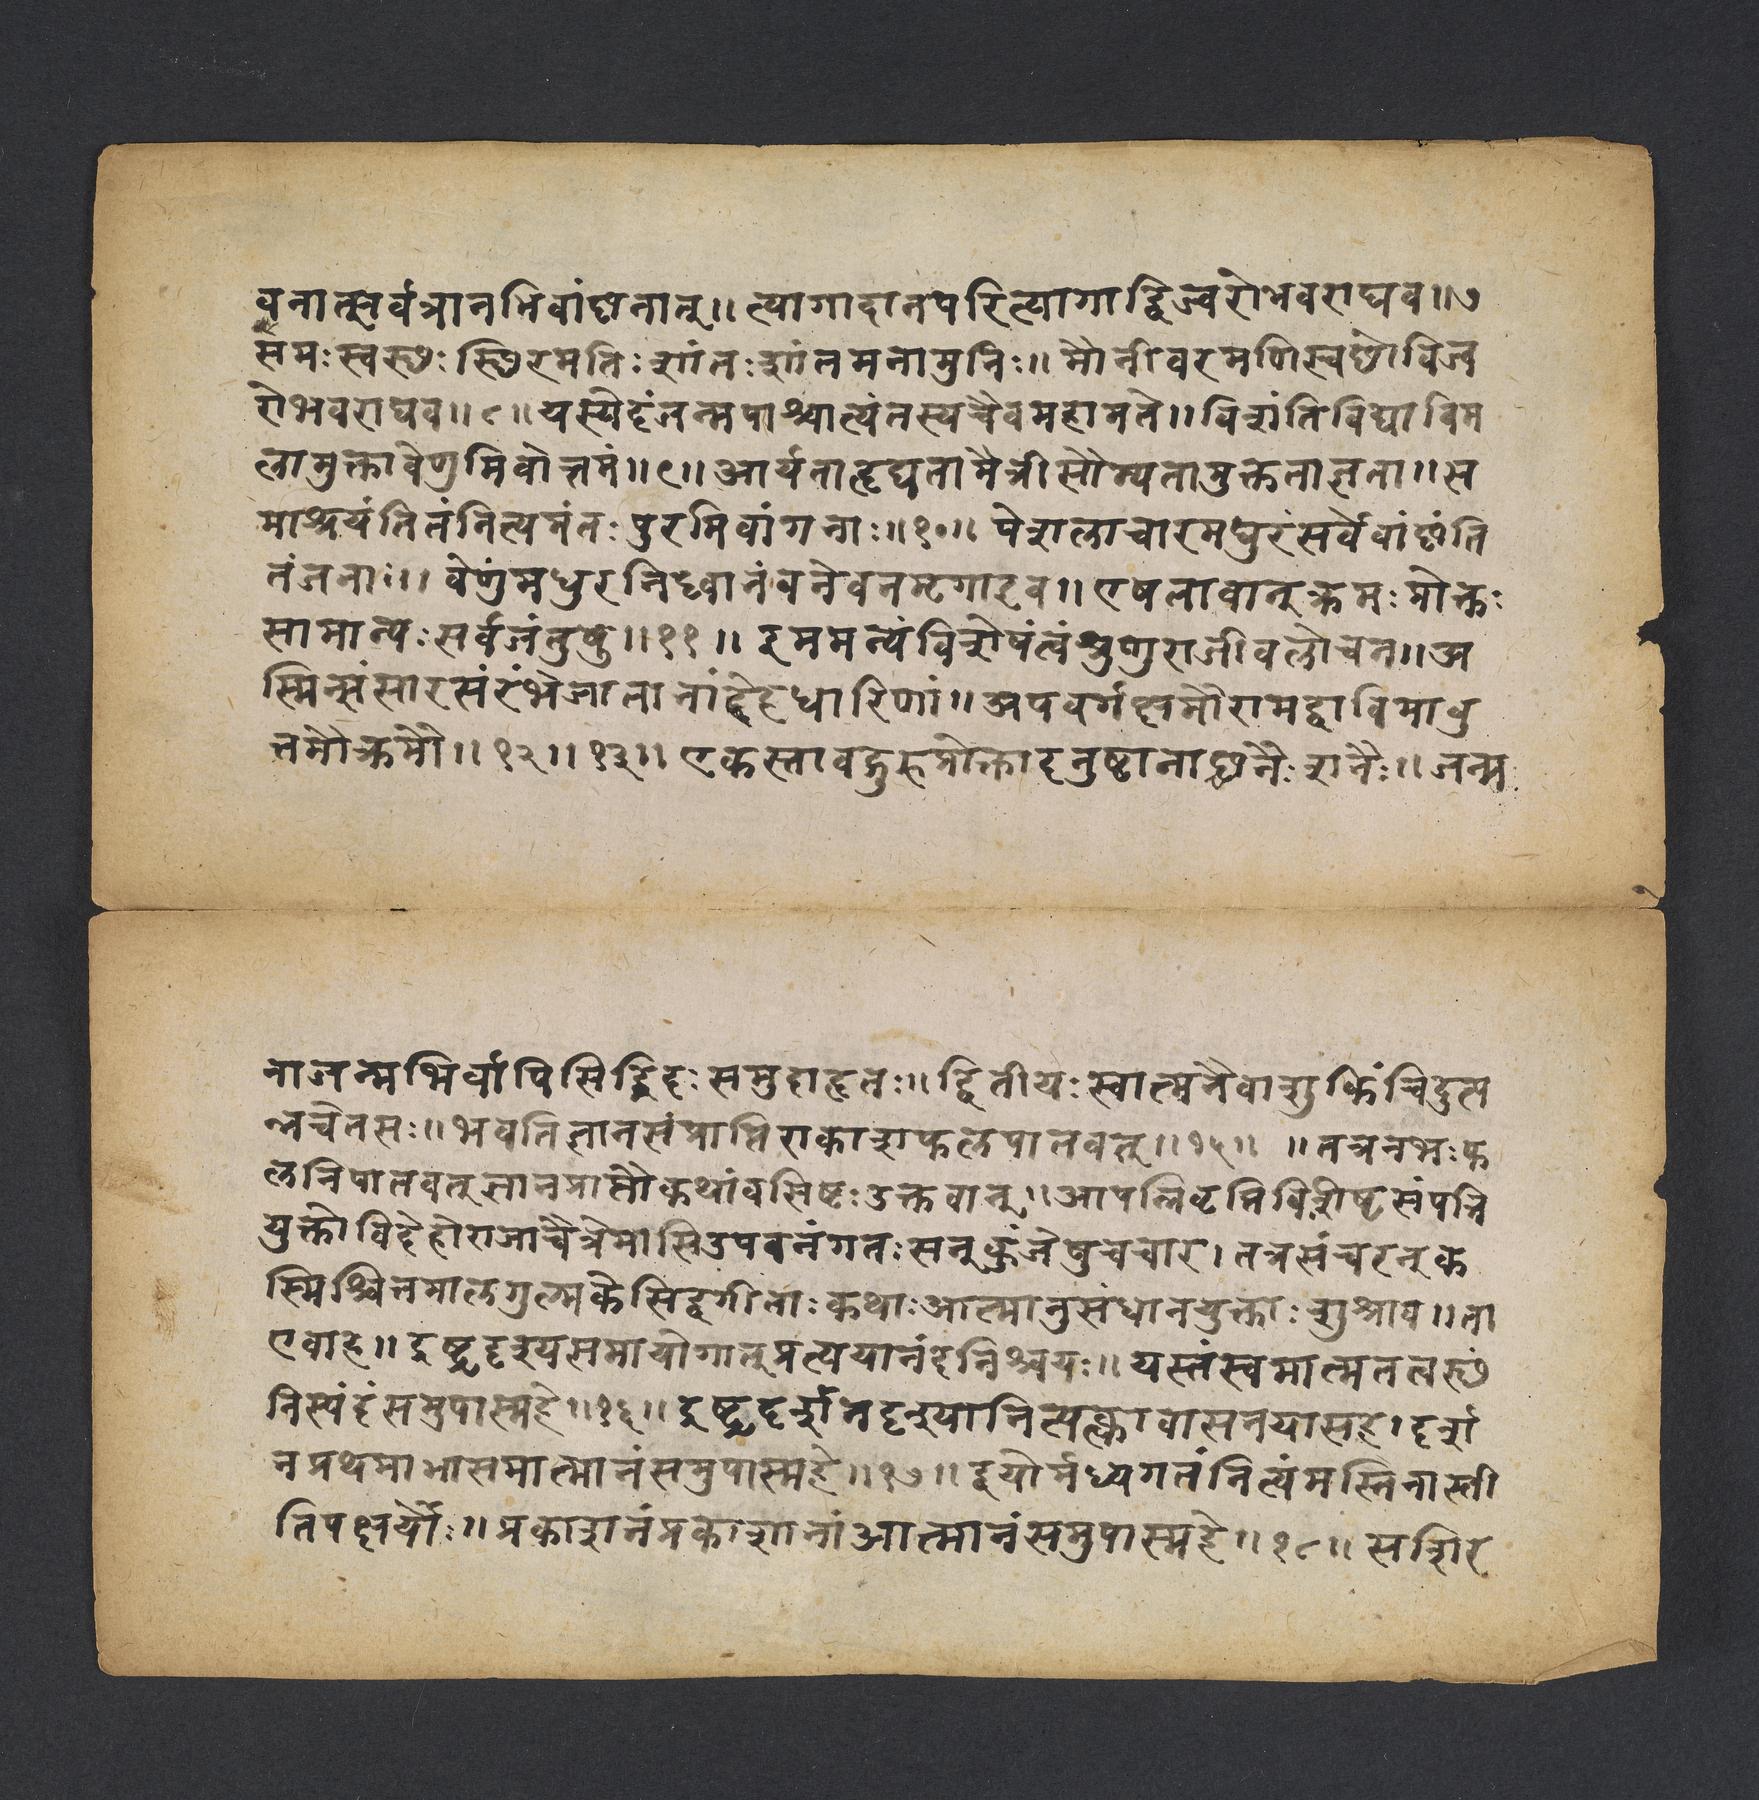 वनात्सर्वत्रानभिवांछनात्॥ त्यागादानपरित्यागाद्विज्वरोभवराघव॥७
समःस्वस्छःस्छिरमतिःशांतःशांतमनामुनिः॥ मौनीवरमणिस्वछोविज्व
रोभवराघव॥८॥यस्येदंजन्मपाश्चात्यंतस्यचैवमहामते॥ विशंतिविद्याविम
लामुक्तावेणुमिवोत्तमं॥९॥आर्यताहृद्यतामैत्रीसौम्यतामुक्तताज्ञता॥स
माश्रयंतितंनित्यमंतःपुरमिवांगनाः॥१०॥ पेशलाचारमधुरंसर्वेवांछंति
तंजनाः॥ वेणुंमधुरनिध्वानंवनेवनमृगाइव॥एषतावात्क्रमःप्रोक्तः
सामान्यःसर्वजंतुषु॥११॥ इममन्यंविशेषंत्वंश्रुणुराजीवलोचन॥अ
स्मिन्संसारसंरंभेजातानांद्देहधारिणां॥अपवर्गक्षमौरामद्वाविमावु
त्तमौक्रमौ॥१२॥१३॥ एकस्तावद्गुरुप्रोक्तादनुष्ठानाछनैःशनैः॥जन्म
नाजन्मभिर्वापिसिद्धिदःसमुदाहृतः॥द्वितीयःस्वात्मनैवाशुकिंचिद्व्युत्प
न्नचेतसः॥भवतिज्ञानसंप्राप्तिराकाशफलपातवत्॥१५॥ ॥तत्रनभःफ
लनिपातवत्ज्ञानप्राप्तौकथांवसिष्टःउक्तवान्॥आपन्निवृत्तिविशीष्टसंपत्ति
युक्तोविदेहोराजाचैत्रेमासिउपवनंगतःसन्कुंजेषुचचार।तत्रसंचरन्क
स्मिश्चित्तमालगुल्मकेसिद्धगीताःकथाःआत्मानुसंधानयुक्ताःशुश्राव॥ता
एवाह॥द्रष्टृदृश्यसमायोगात्प्रत्ययानंदनिश्चयः॥यस्तंस्वमात्मतत्वस्छं
निस्पंदंसमुपास्महे॥१६॥द्रष्टृदर्शनदृश्यानित्यक्त्वावासनयासह।दर्श
नप्रथमाभासमात्मानंसमुपास्महे॥१७॥द्वयोर्मध्यगतंनित्यंमस्तिनास्ती
तिपक्षयोः॥प्रकाशनंप्रकाशानांआत्मानंसमुपास्महे॥१८॥सशिर